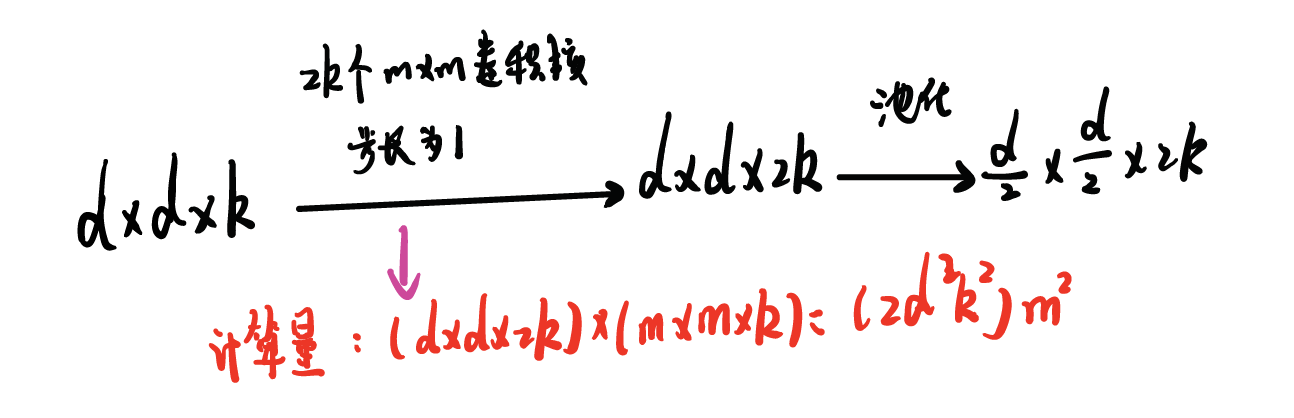 2k个 m×m 卷积核
步长为1
池化
d×d×k → d×d×2k → d/2 × d/2 × 2k
计算量：(d×d×2k)×(m×m×k)= (2d²k²)m²